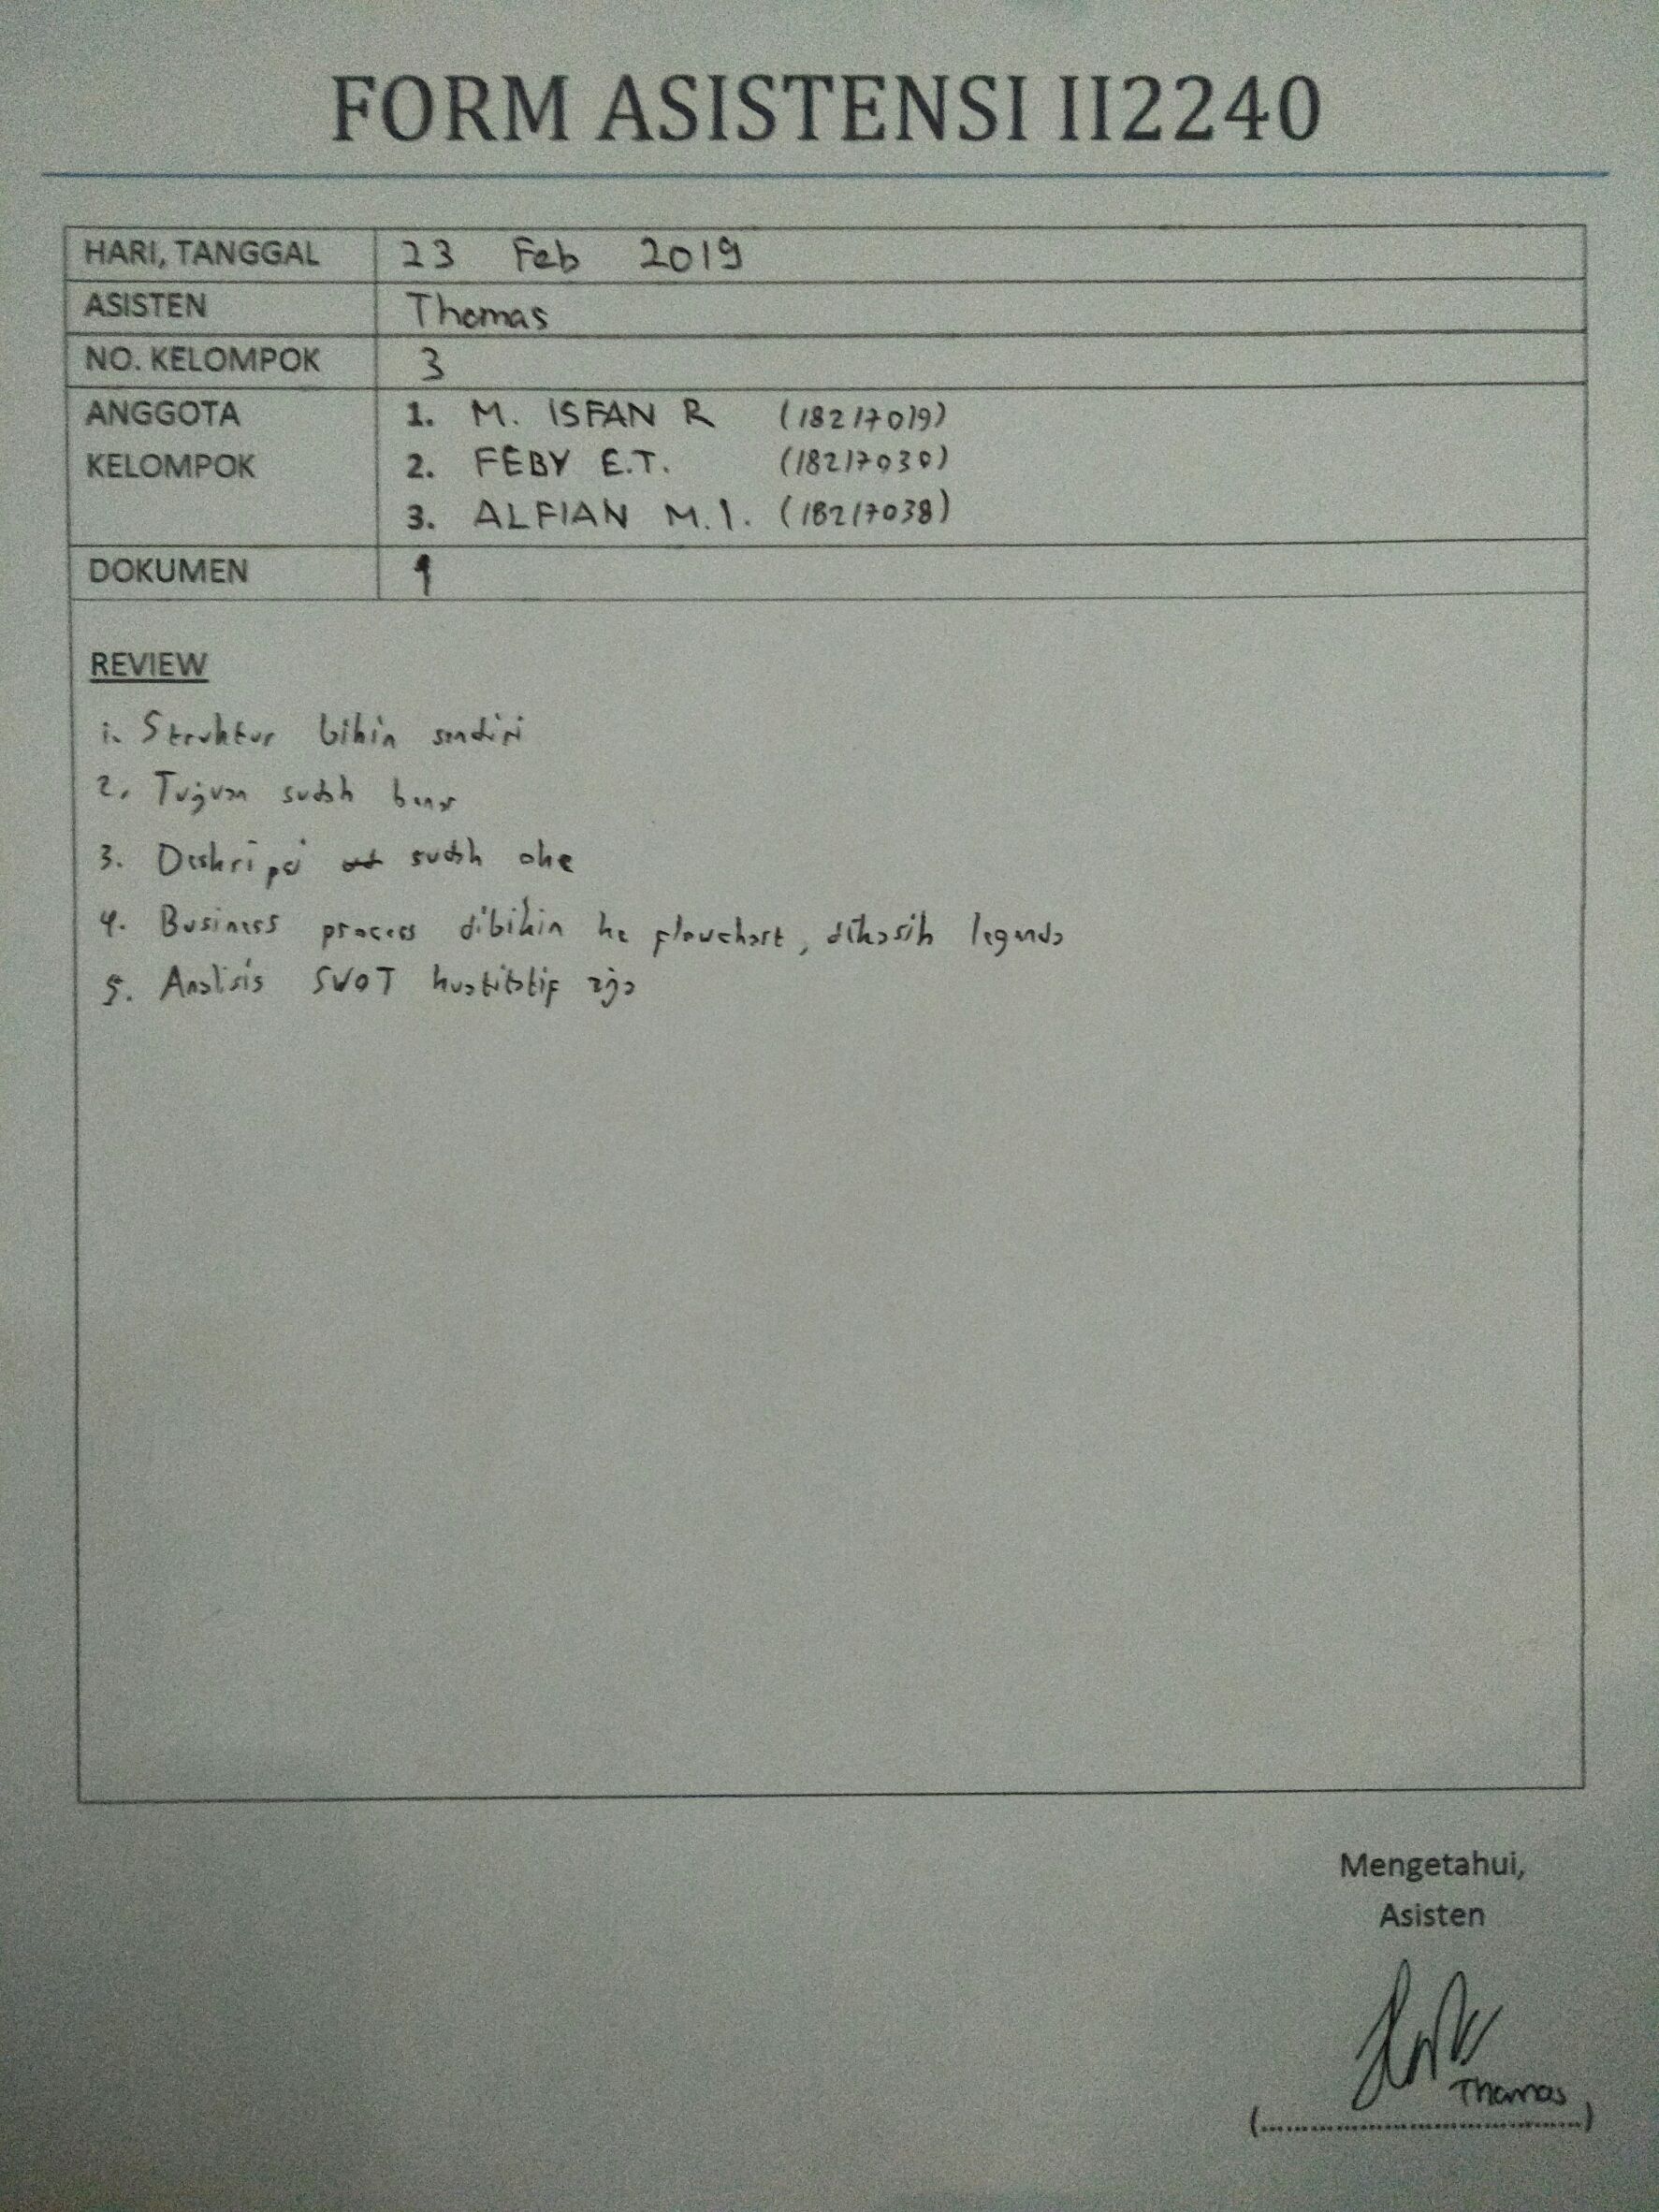 FORM ASISTENSI II2240
HARI, TANGGAL 23 Feb 2019
ASISTEN Thomas
NO. KELOMPOK 3
ANGGOTA 1. M. ISFAN R (18217019)
KELOMPOK 2. FEBY E.T. (18217030)
3. ALFIAN M.I. (18217038)
DOKUMEN 1
REVIEW
1. Struktur bikin sendiri
2. Tujuan sudah benar
3. Deskripsi sudah oke
4. Business process dibikin ke flowchart, dikasih legenda
5. Analisis SWOT aja
Mengetahui,
Asisten
Thomas
(..............................)